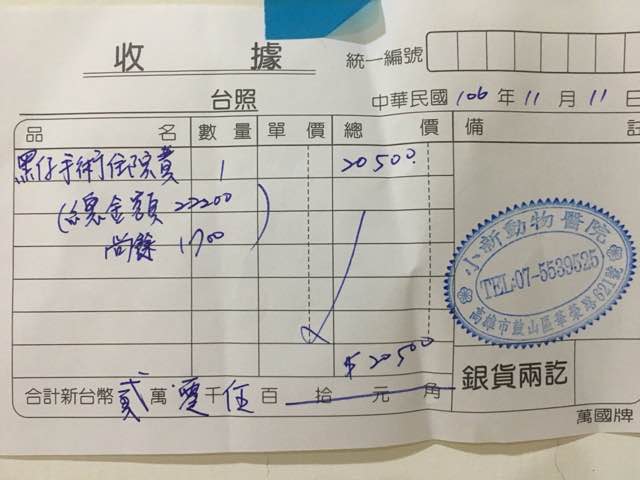 收據
統一編號
台照
中華民國 106 年 11 月 11 日
品名 數量 單價 總價 備註
黑仔手術住院費 1 20500.
(總金額 22200
尚餘 1700 )
小新動物醫院
TEL:07-5539525
高雄市鼓山區華榮路621號
$ 20500
合計新台幣 貳 萬 零 千 伍 百 拾 元 角
銀貨兩訖
萬國牌